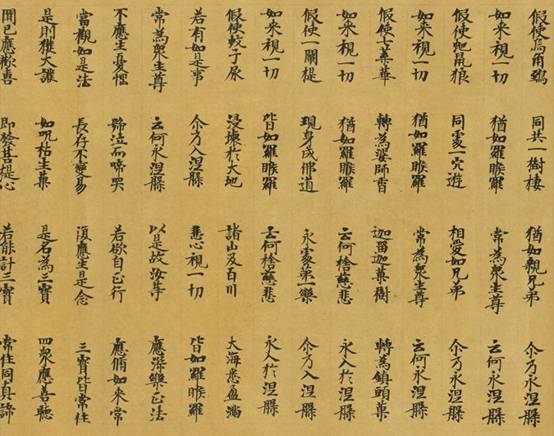 假使烏角鵄 同共一樹棲 猶如親兄弟 尒乃永涅槃
如來視一切 猶如羅睺羅 常為眾生尊 云何永涅槃
假使虵鼠狼 同處一穴遊 相愛如兄弟 尒乃永涅槃
如來視一切 猶如羅睺羅 常為眾生尊 云何永涅槃
假使七葉華 轉為婆師香 迦留迦菓樹 轉為鎮頭菓
如來視一切 猶如羅睺羅 云何捨慈悲 永入於涅槃
假使一闡提 現身成佛道 永處第一樂 尒乃入涅槃
如來視一切 皆如羅睺羅 云何捨慈悲 永入於涅槃
假使蚊子尿 浸壞於大地 諸山及百川 大海悉盈滿
若有如是事 尒乃入涅槃 悲心視一切 皆如羅睺羅
常為眾生尊 云何永涅槃 以是故汝等 應深樂正法
不應生憂惱 號泣而啼哭 若欲自正行 應脩如來常
當觀如是法 長存不變易 復應生是念 三寶皆常住
是則獲大護 如呪枯生菓 是名為三寶 四眾應善聽
聞已應歡喜 即發菩提心 若能計三寶 常住同真諦